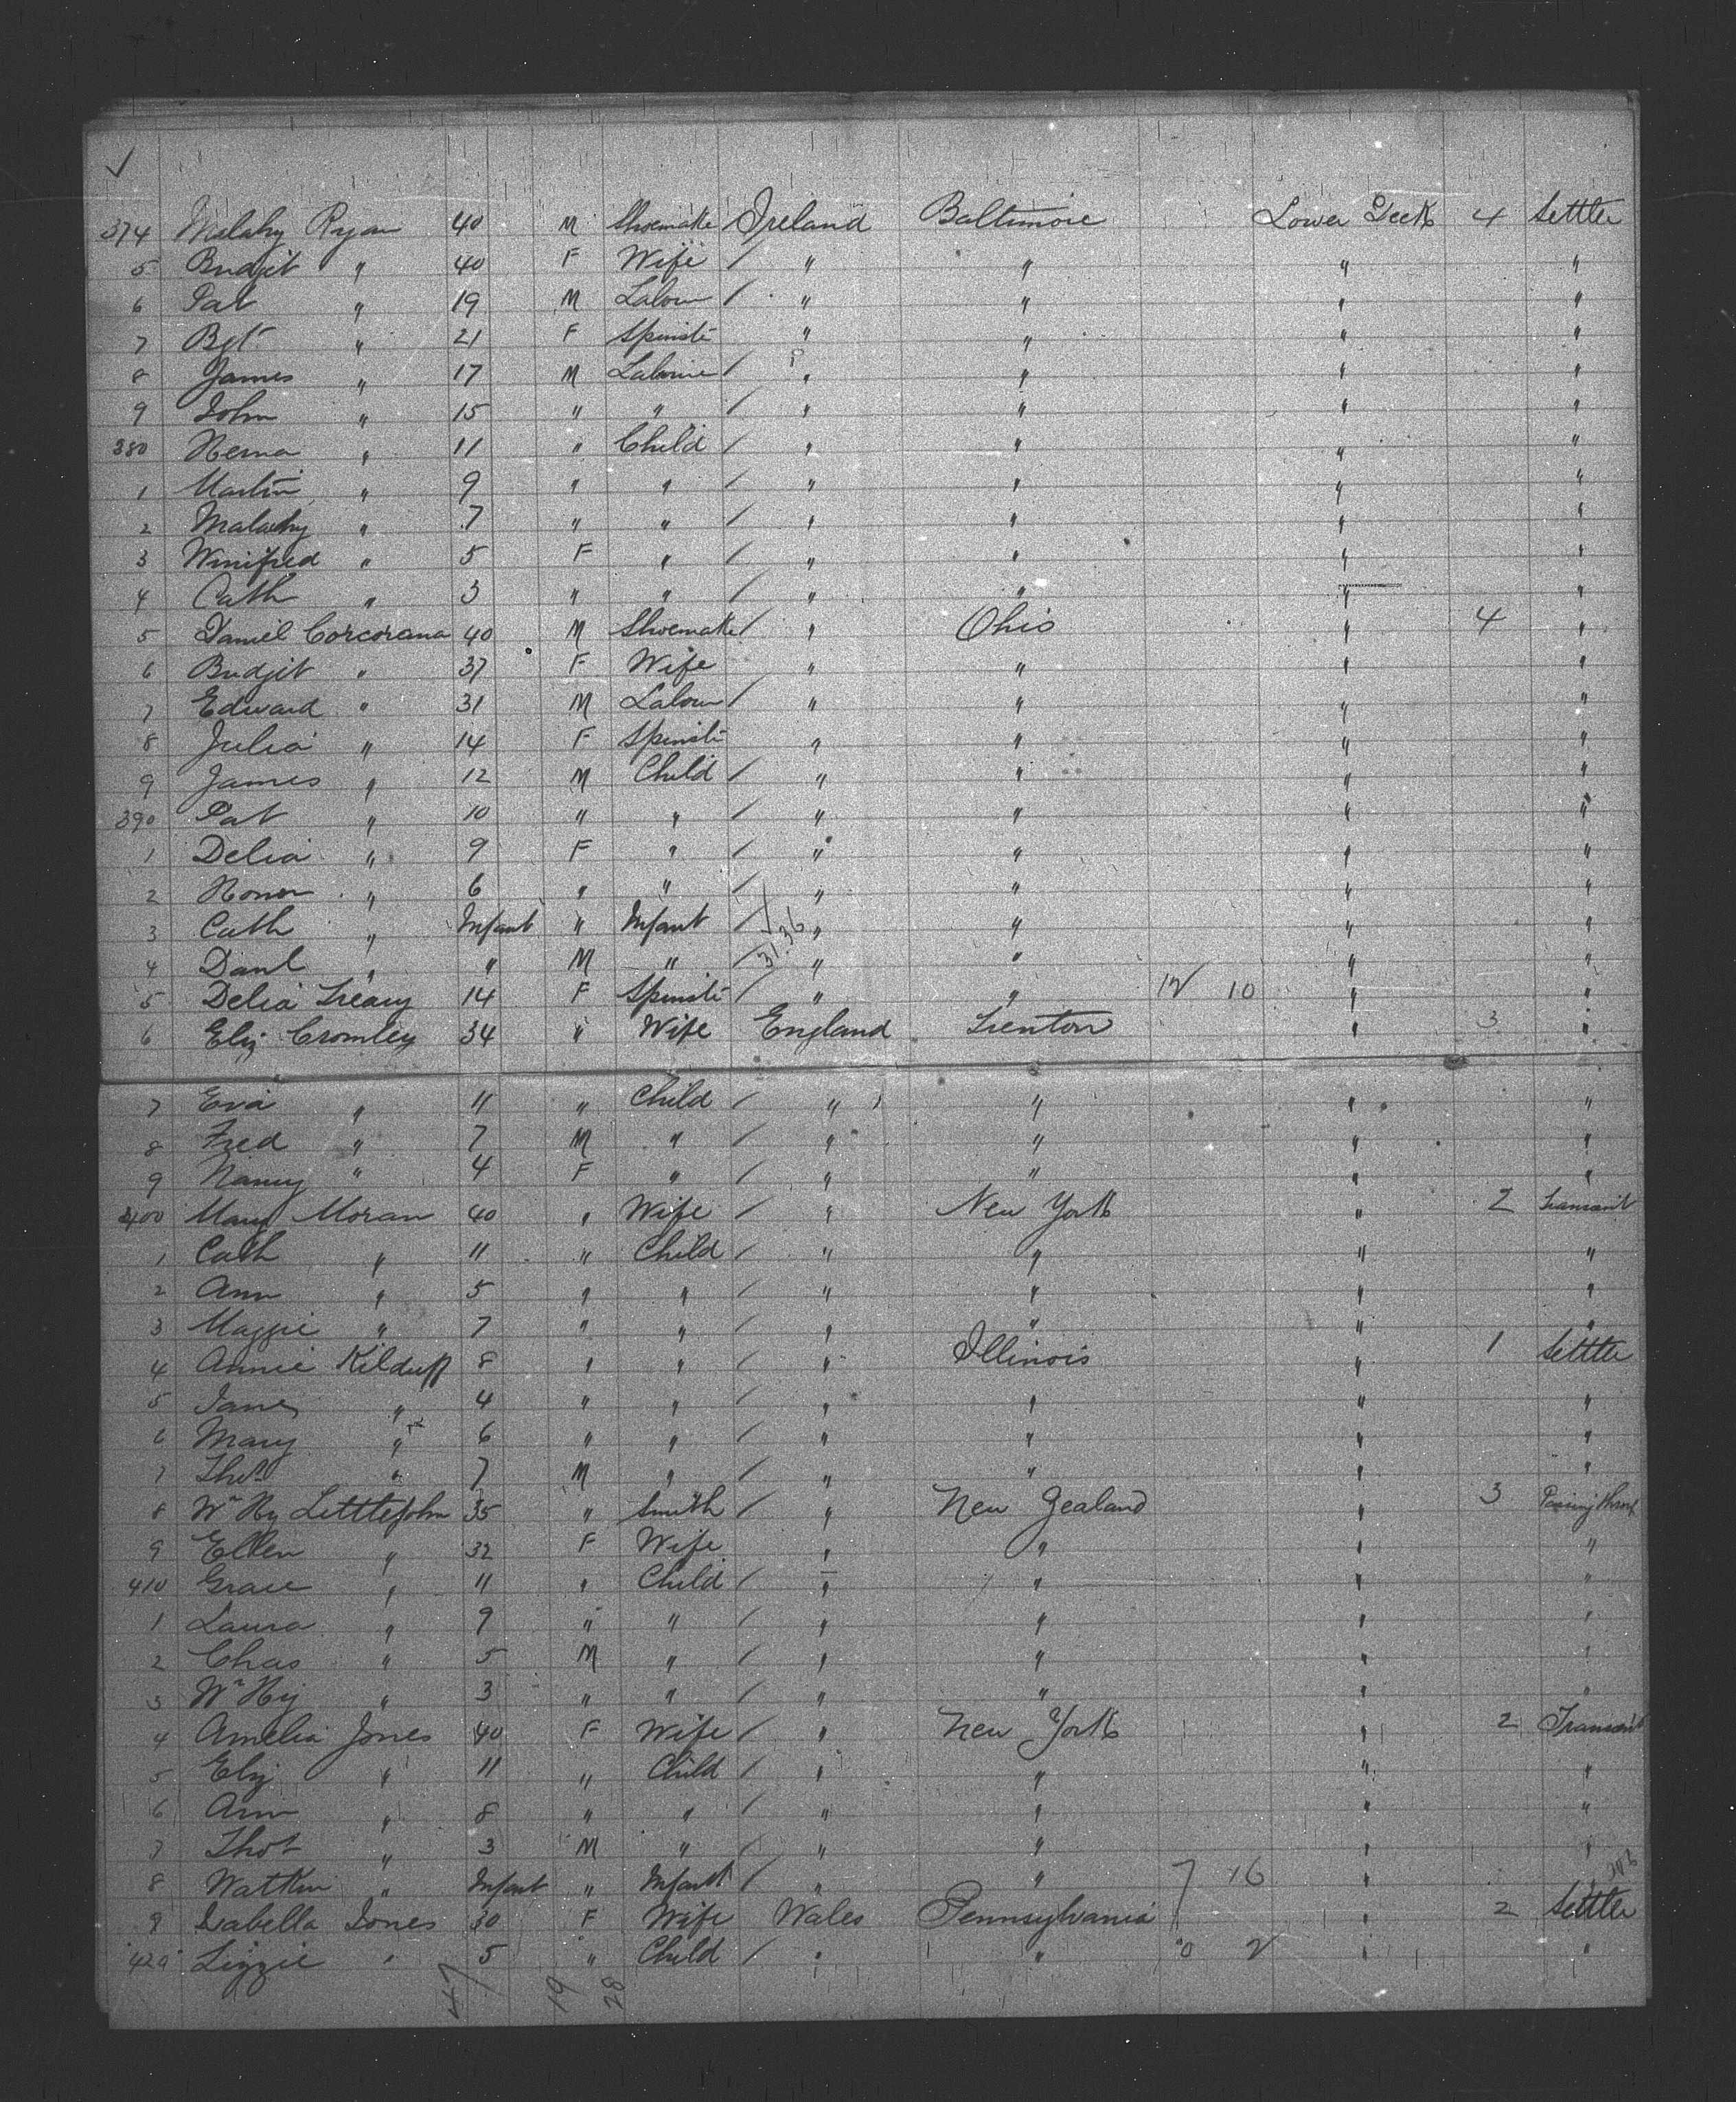 ✓
374 Malahy Ryan 40 M Shoemake / Ireland Baltimore Lower Deck 4 Settler
5 Bridgit " 40 F Wife / " " " "
6 Pat " 19 M Labour / " " " "
7 Bgt " 21 F Spinste " " " "
8 James " 17 M Labourer / " " " "
9 John " 15 " " / " " " "
380 " 11 " Child / " " " "
1 Martin " 9 " " / " " " "
2 Malachy " 7 " " / " " " "
3 Winifred " 5 F " / " " " "
4 Cath " 3 " " / " " " "
5 Daniel Corcoran 40 M Shoemake / " Ohio " 4 "
6 Bridgit " 37 F Wife " " " "
7 Edward " 31 M Labour / " " " "
8 Julia " 14 F Spinste " " " "
9 James " 12 M Child / " " " "
390 Pat " 10 " " / " " " "
1 Delia " 9 F " / " " " "
2 Honor " 6 " " / " " " "
3 Cath " Infant " Infant / " " " "
4 Danl " " M " / " " " "
5 Delia Treacy 14 F Spinste / " " 12 10 " "
6 Eliz Cromley 34 " Wife England Trenton " 3 "
7 Eva " 11 " Child / " " " "
8 Fred " 7 M " / " " " "
9 Nancy " 4 F " / " " " "
400 Mary Moran 40 " Wife / " New York " 2 Transit
1 Cath " 11 " Child / " " " "
2 Ann " 5 " " / " " " "
3 Maggie " 7 " " / " " " "
4 Annie Kilduff 8 " " / " Illinois " 1 Settler
5 Jane " 4 " " / " " " "
6 Mary " 6 " " / " " " "
7 Thos " 7 M " / " " " "
8 Wm Hy Littlejohn 35 " Smith / " New Zealand " 3 Passing through
9 Ellen " 32 F Wife " " " "
410 Grace " 11 " Child / " " " "
1 Laura " 9 " " / " " " "
2 Chas " 5 M " / " " " "
3 Wm Hy " 3 " " / " " " "
4 Amelia Jones 40 F Wife / " New York " 2 Transit
5 Eliz " 11 " Child / " " " "
6 Ann " 8 " " / " " " "
7 Thos " 3 M " / " " " "
8 Watkin " Infant " Infant / " " 7 16 " "
9 Isabella Jones 30 F Wife Wales Pennsylvania " 2 Settler
420 Lizzie " 5 " Child / " " 0 2 " "
47 19 28